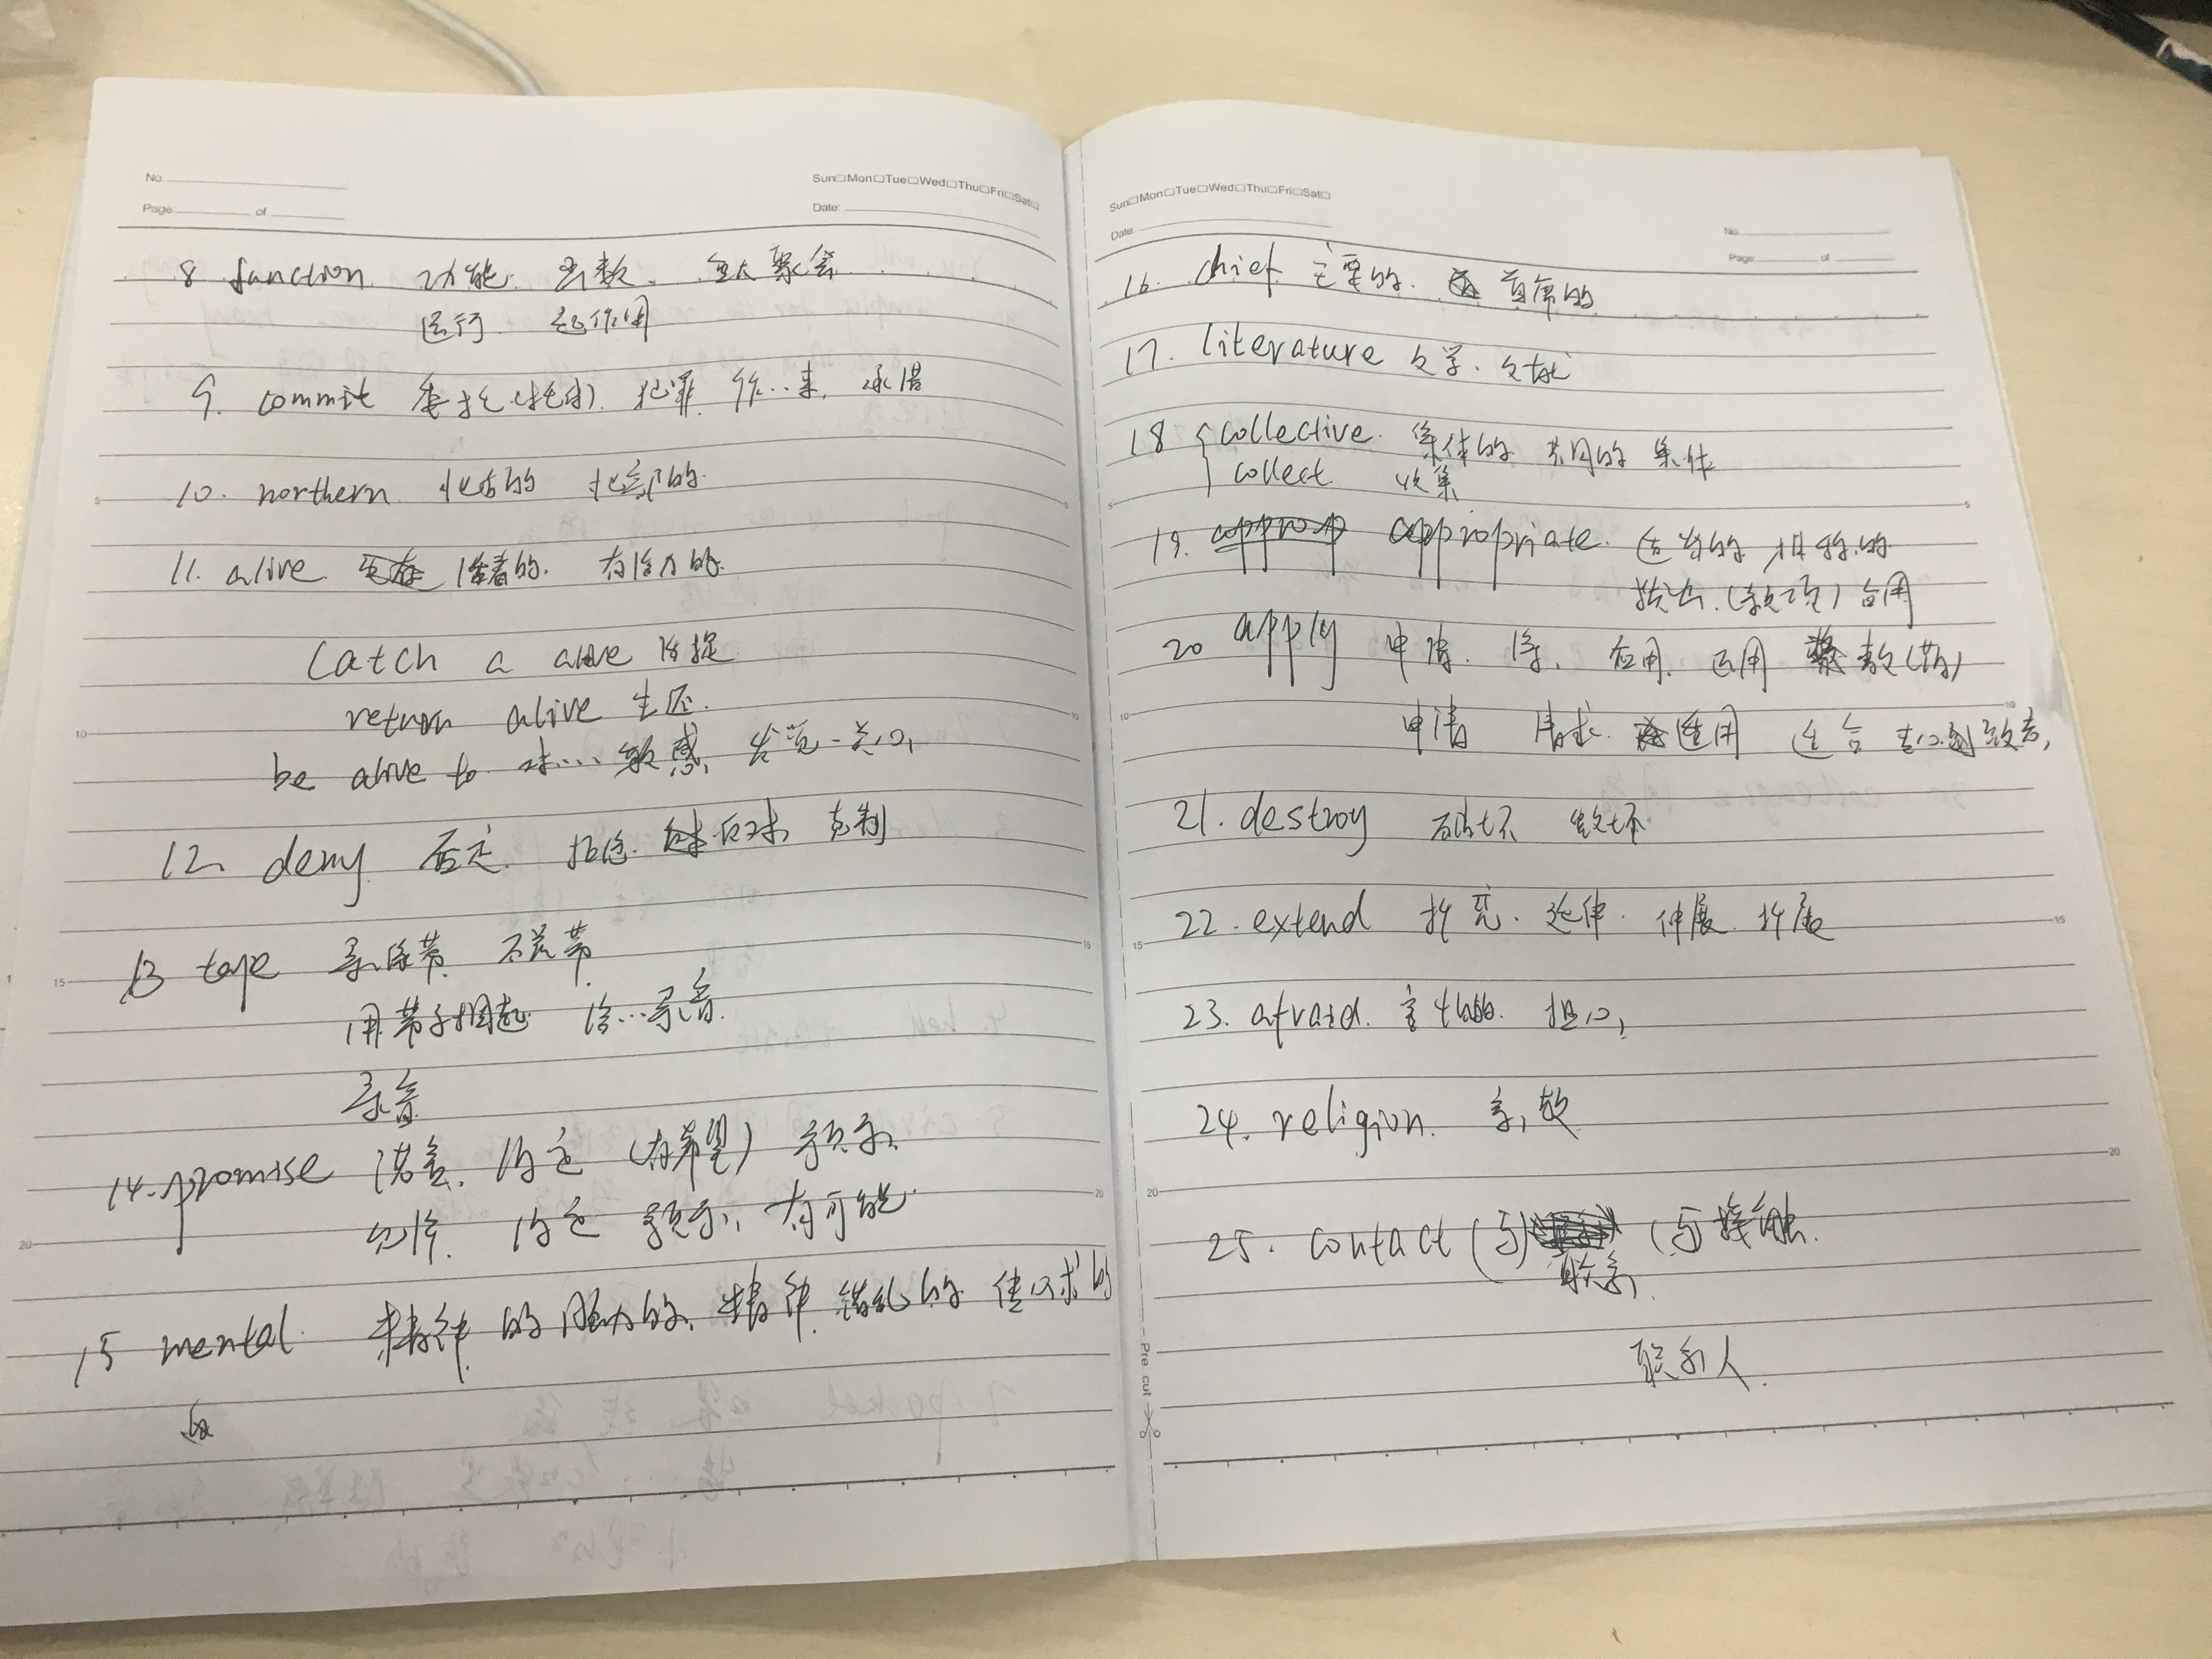 No.
Page of
Sun□Mon□Tue□Wed□Thu□Fri□Sat□
Date:
8 function 功能. 函数. 重大聚会
运行 起作用
9. commit 委托(托付). 犯罪 作…事. 承诺
10. northern 北方的 北部的
11. alive 活着的. 有活力的.
Catch a alive 活捉
return alive 生还.
be alive to 对…. 敏感. 发觉. 关心
12. deny 否定. 拒绝. 反对. 克制
13 tape 录像带. 不芯带.
用带子捆起 给…录音.
录音
14. promise 诺言. 约定 (有希望) 预示.
允许. 约定 预示. 有可能
15 mental 精神的 脑力的. 精神错乱的
的
Sun□Mon□Tue□Wed□Thu□Fri□Sat□
Date:
No.
Page of
16. chief 主要的. 首席的
17. literature 文学. 文献
18 { collective. 集体的 共同的 集体
collect 收集
19. approp appropriate. 适当的 相称的
拨出.(款项) 占用
20 apply 申请. 涂. 应用. 运用 敷(药)
申请 请求 适用 适合
21. destroy 破坏 毁坏
22. extend 扩充. 延伸. 伸展. 扩展
23. afraid. 害怕的. 担心
24. religion. 宗教
25. contact (与) (与接触.
联系.
联系人.
Pre cut